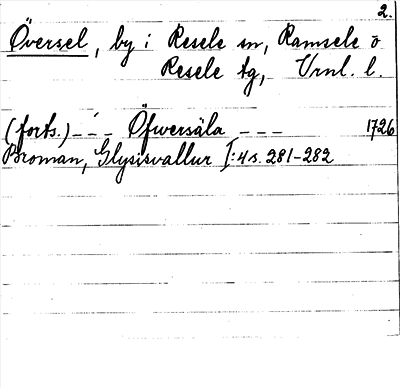 2.
Översel, by i Resele sn, Ramsele o
Resele tg, Vrnl. l.
(forts.) - - - Öfwersäla - - - 1726
Broman, Glysisvallur I:4 s. 281-282